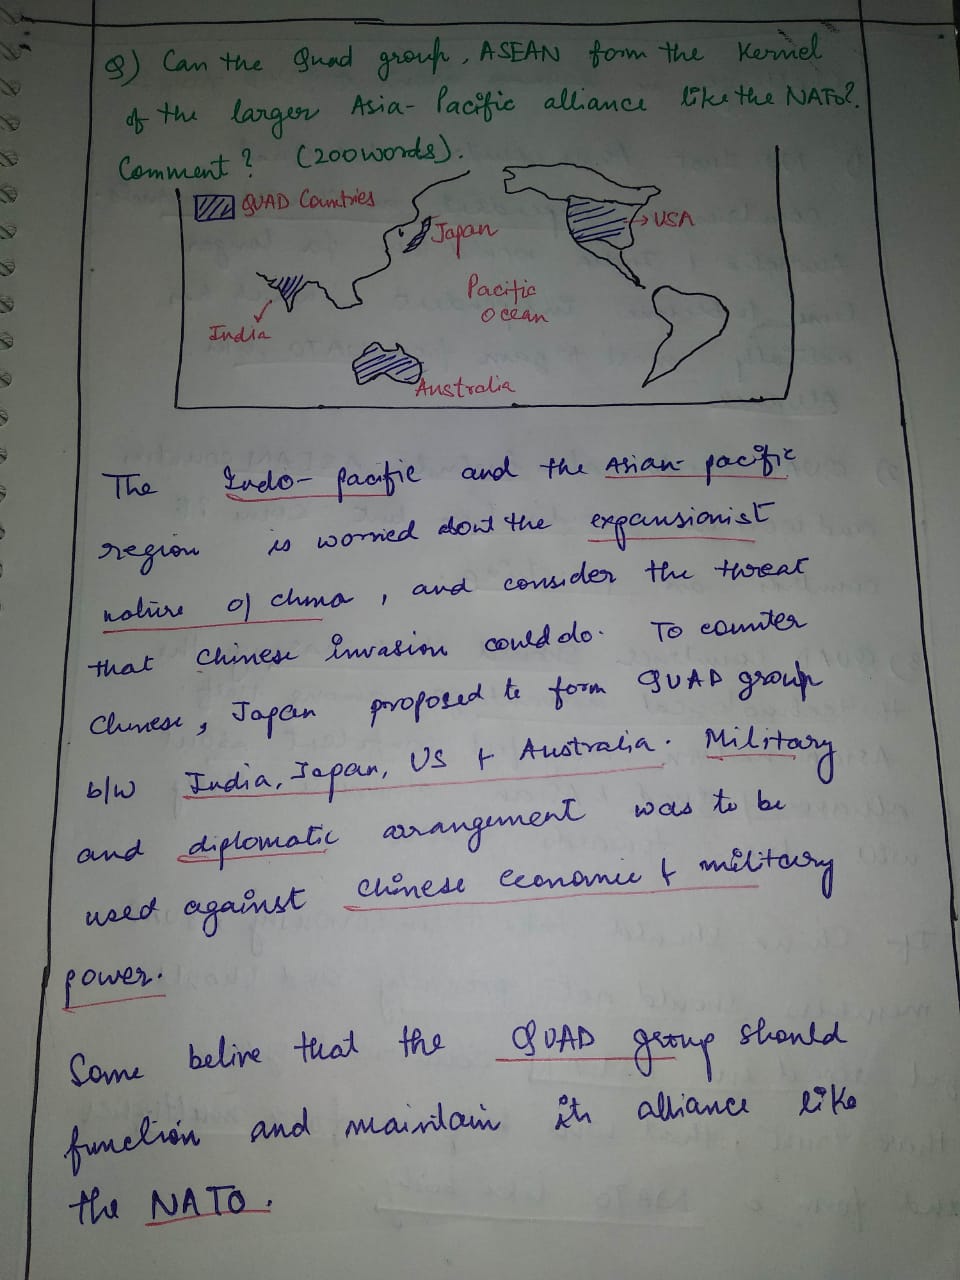 Q) Can the Quad group, ASEAN form the Kernel
of the larger Asia-Pacific alliance like the NATO?.
Comment? (200words).
QUAD Countries
Japan
USA
Pacific
Ocean
India
Australia
The Indo-pacific and the Asian-pacific
region is worried about the expansionist
nature of china, and consider the threat
that chinese invasion could do. To counter
Chinese, Japan proposed to form QUAD group
b/w India, Japan, US & Australia. Military
and diplomatic arrangement was to be
used against chinese economic & military
power.
Some belive that the QUAD group should
function and maintain its alliance like
the NATO.